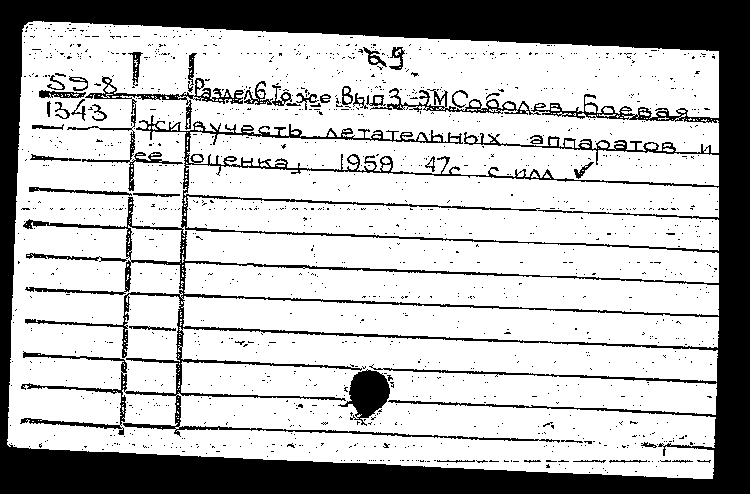 29
59-8 Раздел 6. То же. Вып 3. ЭМ Соболев, Боевая
1343 живучесть летательных аппаратов и
её оценка, 1959 47с с илл ✓